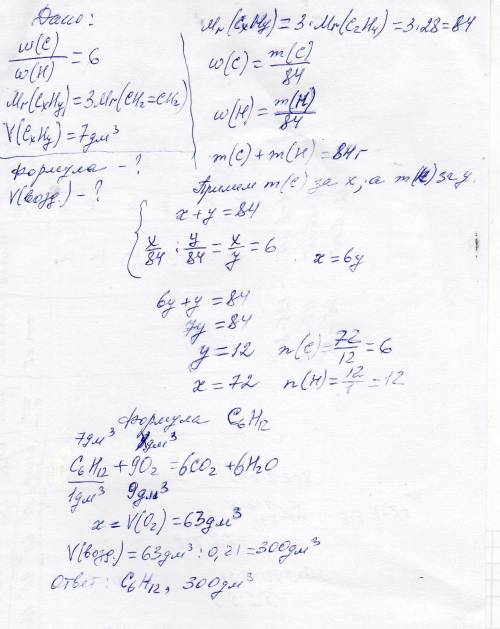 Дано:
w(C)/w(H) = 6
Mr(CxHy) = 3Mr(CH2=CH2)
V(CxHy) = 7дм³
Формула - ?
V(возд.) - ?
Mr(CxHy) = 3·Mr(C2H4) = 3·28 = 84
w(C) = m(C)/84
w(H) = m(H)/84
m(C) + m(H) = 84г
Примем m(C) за x, а m(H) за y.
x + y = 84
x/84 : y/84 = x/y = 6   x = 6y
6y + y = 84
7y = 84
y = 12   n(C) = 72/12 = 6
x = 72   n(H) = 12/1 = 12
Формула C6H12
7дм³   xдм³
C6H12 + 9O2 = 6CO2 + 6H2O
1дм³   9дм³
x = V(O2) = 63дм³
V(возд.) = 63дм³ : 0,21 = 300дм³
Ответ: C6H12, 300дм³